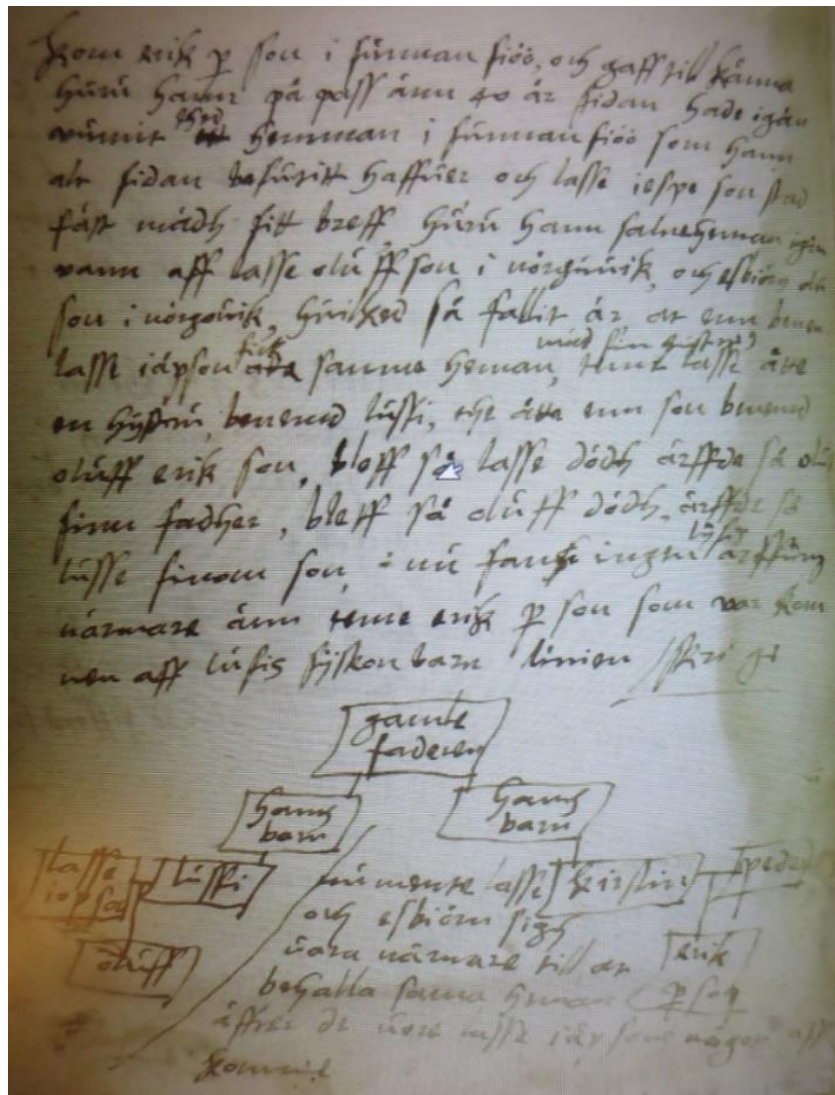 kom erik p son i furman siöö, och gaff till känna
huru hann på pass änn 40 år sidan hade igän
wunnit thed hemman i furman siöö som hann
alt sidan besutitt haffuer och lasse iespe son stad
fäst mädh sitt breff, huru hann heman igen
vann aff lasse oluffson i norguuik, och esbiörn olu
son i norgouik, huilked så fallit är at enn benen
lasse iäpson fick samme heman, med sin hustru, lasse åtte
en hustru, benemd lussi, the åtte enn son benemd
oluff erik son, bleff så lasse dödh ärffde så olu
sinn fadher, bleff så oluff dödh, ärffde så
lusse sinom son, nu fans ingen lusis arffuing
närmare änn erik p son som var kom
nen aff lusis syskon barn linien
gamle
faderen
hans
barn
hans
barn
lasse
iopson
lussi
oluff
kirstin
peder
erik
p son
nu mente lasse
och esbiörn sigh
vara närmare till at
behalla sama heman
äffter de vore lasse iäpsons någon aff
komne